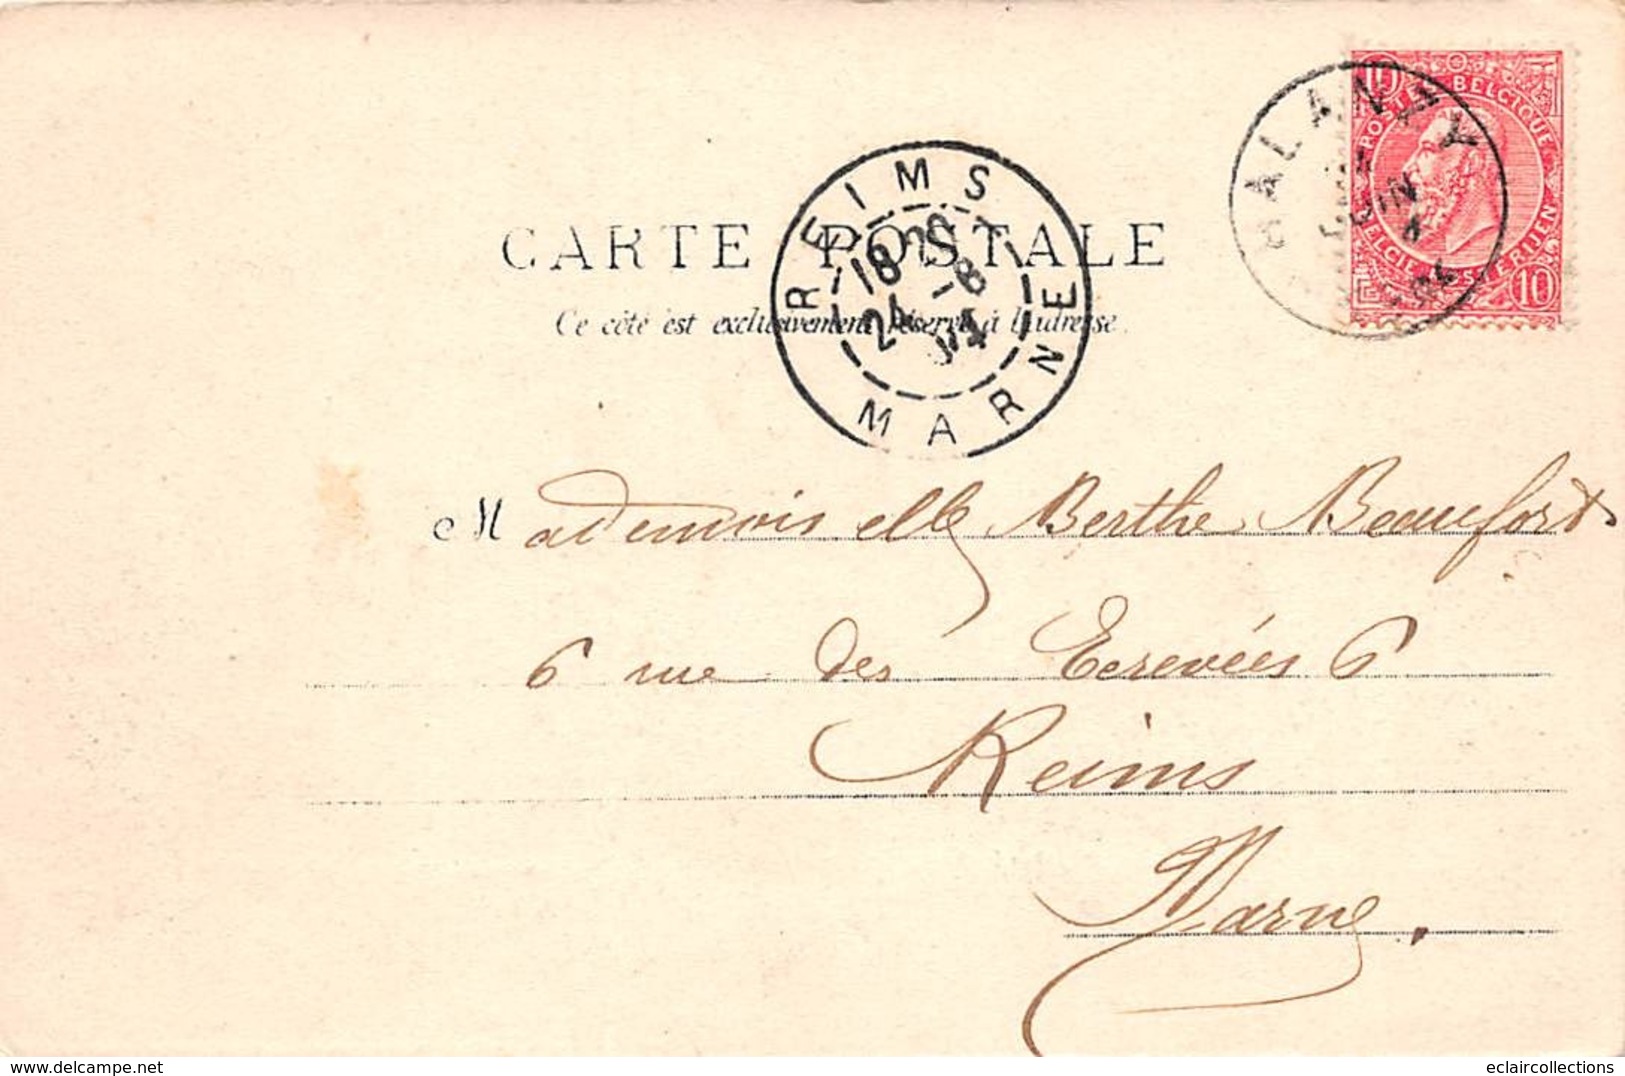 10
POSTES BELGIQUE
HALANZY
JUIN
4
BELGIE POSTERIJEN
10
REIMS
18 20
24 -8
04
MARNE
CARTE POSTALE
Ce côté est exclusivement réservé à l'adresse.
Mademoiselle Berthe Beaufort
6 rue des Ecrevées 6
Reims
Marne.
www.delcampe.net
eclaircollections